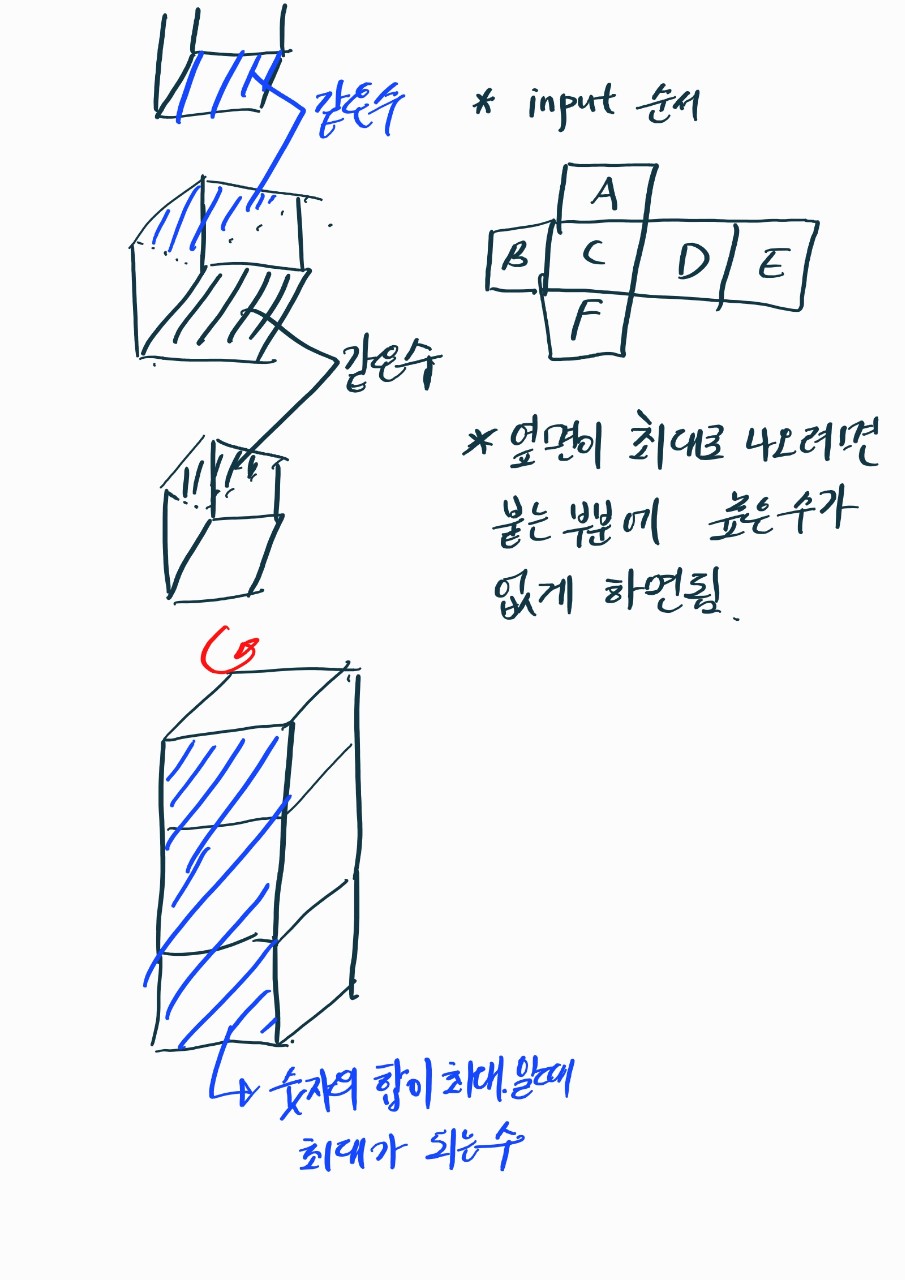 같은수
* input 순서
A
B C D E
F
같은수
* 옆면이 최대로 나오려면
붙는 부분에 높은수가
없게 하면됨.
숫자의 합이 최대.일때
최대가 되는수